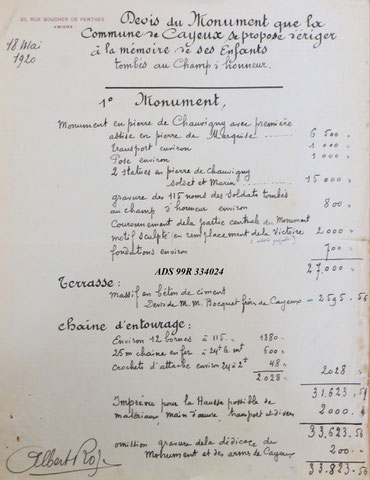 20, RUE BOUCHER DE PERTHES
AMIENS
18 Mai
1920
Devis du Monument que la
Commune de Cayeux se propose d'ériger
à la mémoire de ses Enfants
tombés au Champ d'honneur.
1° Monument,
Monument en pierre de Chauvigny avec première
assise en pierre de Marquise 6 500 "
transport environ 1 000 "
Pose environ 1 000 "
2 statues en pierre de Chauvigny
Soldat et Marin 15 000 "
gravure des 115 noms des Soldats tombés
au champ d'honneur environ 800 "
Couronnement de la partie centrale du Monument
motif sculpté en remplacement de la Victoire 2 000 "
fondations environ 700 "
27 000 "
ADS 99R 334024
Terrasse :
Massif en béton de ciment
Devis de M. M. Bocquet frères de Cayeux 2 595. 56
Chaîne d'entourage :
Environ 12 bornes à 115 " 1380 "
25 m chaîne en fer à 24f le mt 600 "
Crochets d'attache environ 24 à 2f 48 "
2028 "
2028 "
31.623. 56
Imprévu pour la Hausse possible de
matériaux, main d'œuvre, transport et divers 2000 "
33.623. 56
omission gravure de la dédicace du
Monument et des armes de Cayeux 200 "
33.823. 56
Albert Roze